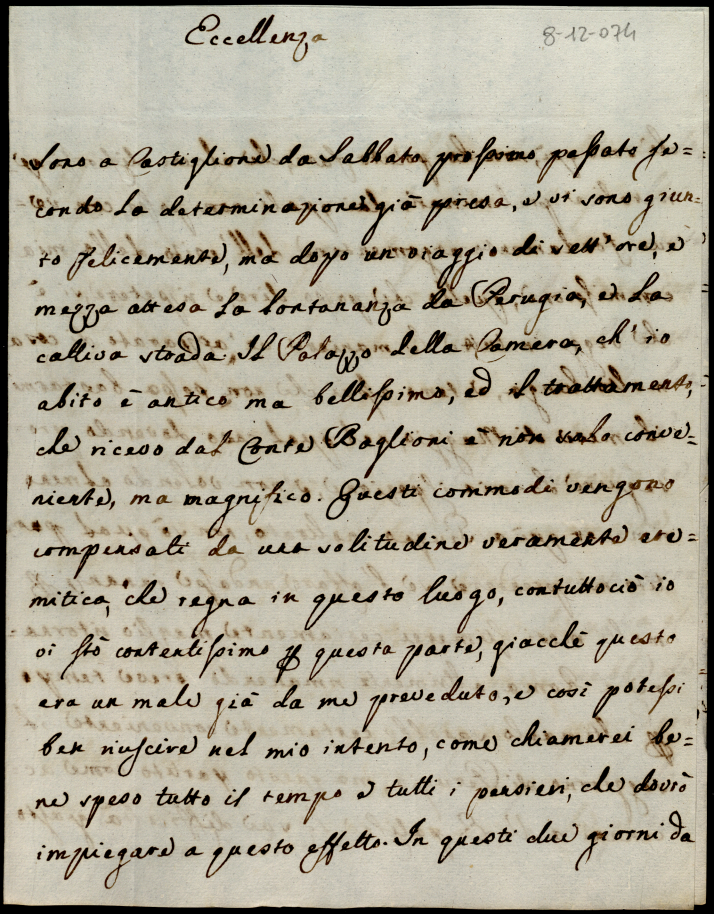 Eccellenza
8-12-074
Sono a Castiglione da Sabbato prossimo passato se=
condo la determinazione già presa, e vi sono giun-
to felicemente, ma dopo un viaggio di sett' ore, e
mezza attesa la lontananza da Perugia, e la
cattiva strada. Il Palazzo della Camera, ch' io
abito è antico ma bellissimo, ed il trattamento,
che ricevo dal Conte Baglioni è non solo conve=
niente, ma magnifico. Questi commodi vengono
compensati da una solitudine veramente ere=
mitica, che regna in questo luogo, contuttociò io
vi stò contentissimo p questa parte, giacchè questo
era un male già da me preveduto, e così potessi
ben riuscire nel mio intento, come chiamerei be=
ne speso tutto il tempo e tutti i pensieri, che dovrò
impiegare a questo effetto. In questi due giorni da